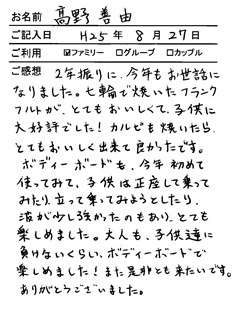 お名前 高野 善由
ご記入日 H25 年 8 月 27 日
ご利用 ☑ファミリー □グループ □カップル
ご感想 2年振りに、今年もお世話に
なりました。七輪で焼いたフランク
フルトが、とてもおいしくて、子供に
大好評でした!カルビも焼いたら
とてもおいしく出来て良かったです。
ボディーボードも、今年初めて
使ってみて、子供は正座して乗って
みたり、立って乗ってみようとしたり、
波が少し強かったのもあり、とても
楽しめました。大人も、子供達に
負けないくらい、ボディーボードで
楽しめました!また是非とも来たいです。
ありがとうございました。